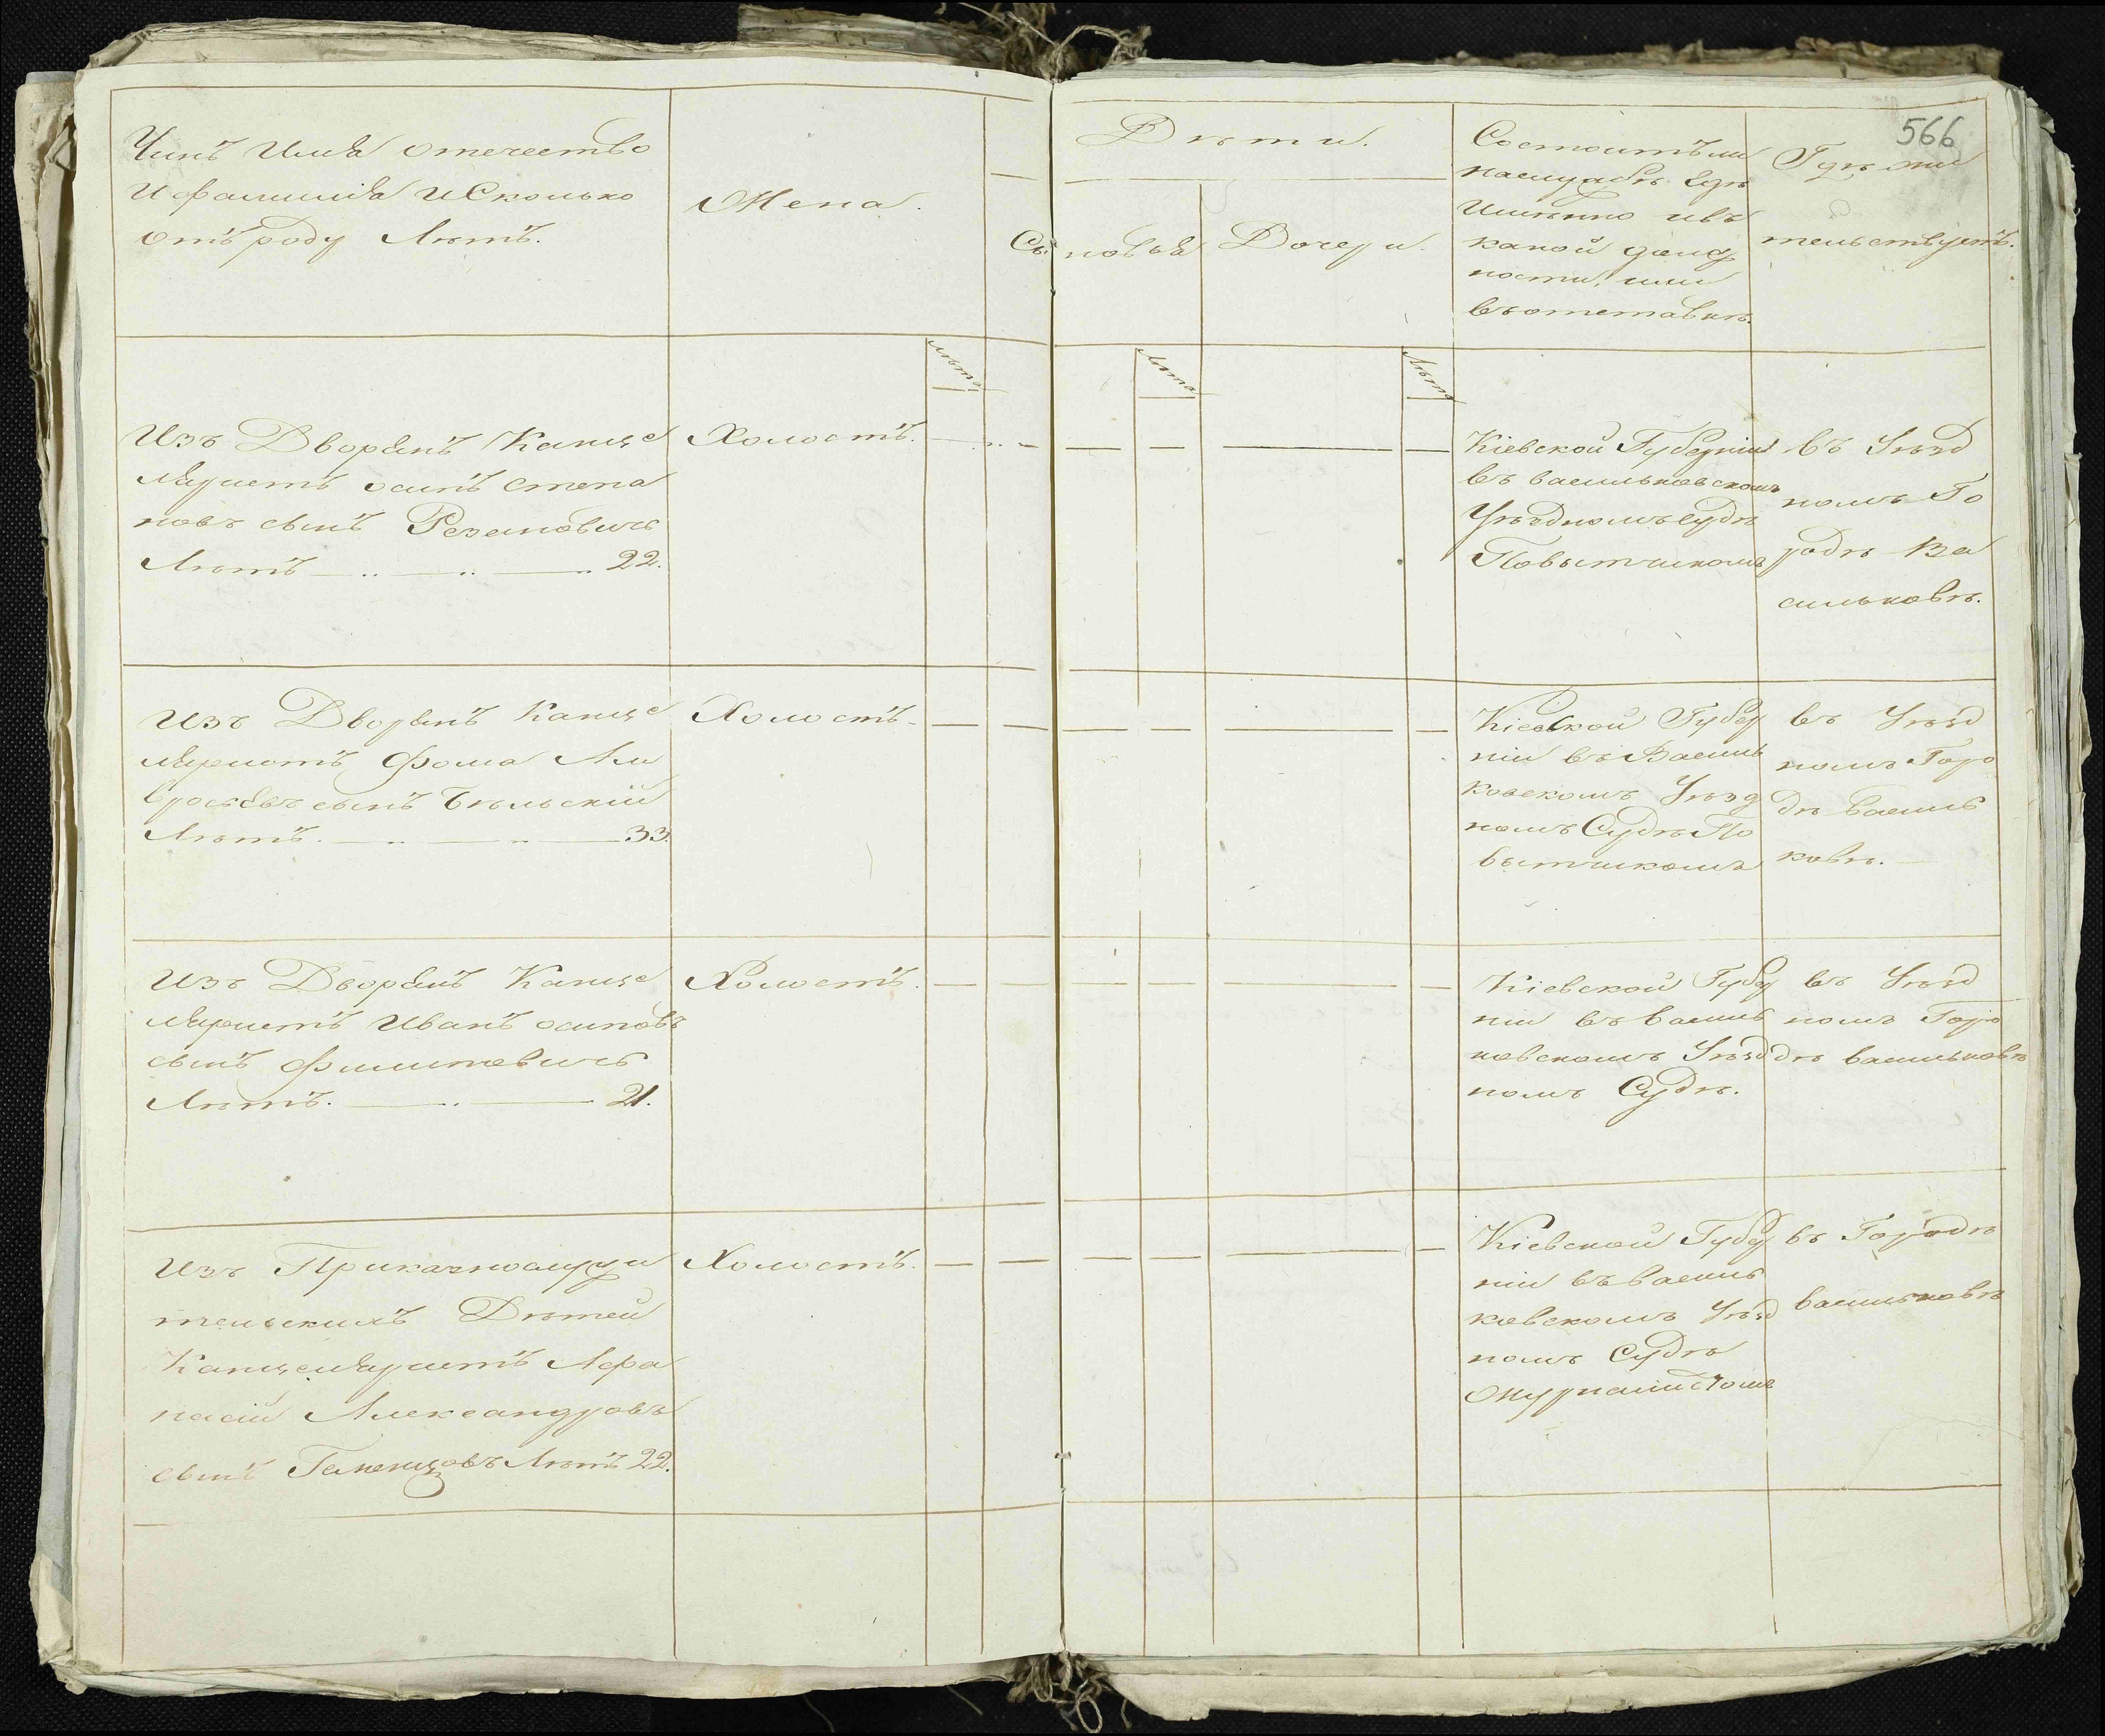 566
Чинъ Имя отечество
и фамилія и Сколько
отъ роду Лѣтъ.
Жена.
Дѣти.
Сыновья
Дочери.
Состоитъ ли
на службѣ гдѣ
Именно и въ
какой долж
ности, или
въ отставкѣ.
Гдѣ жи
тельствуетъ.
лѣта
лѣта
лѣта
Изъ Дворянъ Канце
ляристъ осипъ Степа
новъ сынъ
Лѣтъ 22.
Холостъ.
Кіевской Губерніи
въ васильковскомъ
Уѣздномъ Судѣ
Повытчикомъ
въ Уѣзд
номъ Го
родѣ Ва
сильковѣ.
Изъ Дворянъ Канце
ляристъ Фома Ам
вросіевъ сынъ Бѣльскій
Лѣтъ. 33.
Холостъ
Кіевской Губер
ніи въ Василь
ковскомъ Уѣзд
номъ Судѣ По
вытчикомъ
въ Уѣзд
номъ Горо
дѣ Василь
ковѣ.
Изъ Дворянъ Канце
ляристъ Иванъ осиповъ
сынъ Филиповичь
Лѣтъ. 21.
Холостъ.
Кіевской Губер
ніи въ василь
ковскомъ Уѣзд
номъ Судѣ.
въ Уѣзд
номъ Горо
дѣ васильковѣ
Изъ Приказнослужи
тельскихъ Дѣтей
Канцеляристъ Афа
насій Александровъ
сынъ Лѣтъ 22.
Холостъ.
Кіевской Губер
ніи въ василь
ковскомъ Уѣзд
номъ Судѣ
Журналистомъ
въ Городѣ
васильковѣ